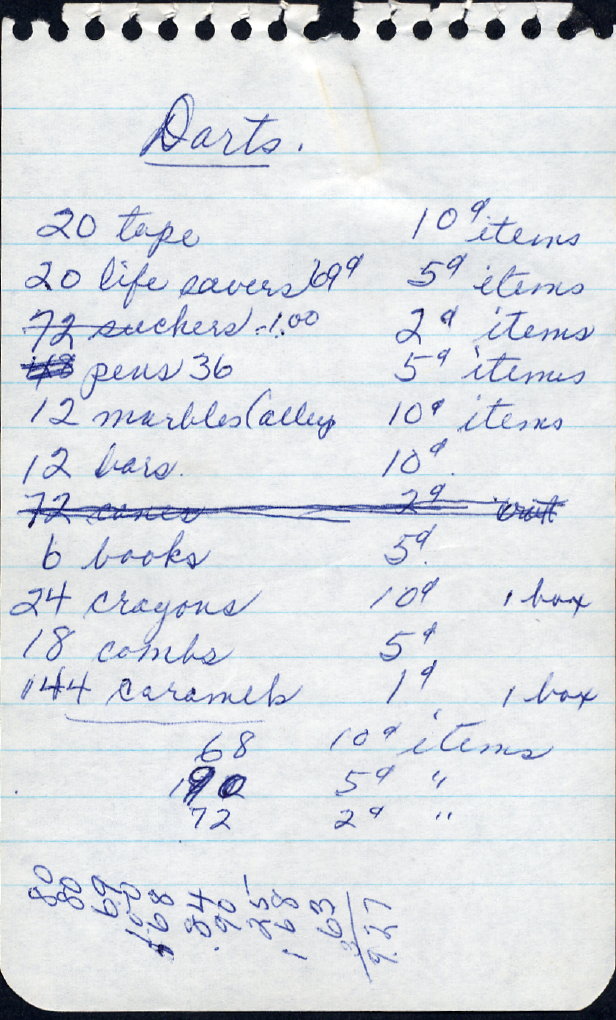 Darts.
20 tape 10¢ items
20 life savers 69¢ 5¢ items
72 suckers - 1.00 2¢ items
48 pens 36 5¢ items
12 marbles (alleys 10¢ items
12 bars. 10¢.
72 canes 2¢
6 books 5¢.
24 crayons 10¢ 1 box
18 combs 5¢
144 caramels 1¢ 1 box
68 10¢ items
190 5¢ "
72 2¢ "
80
80
69
84
90
63
9.27